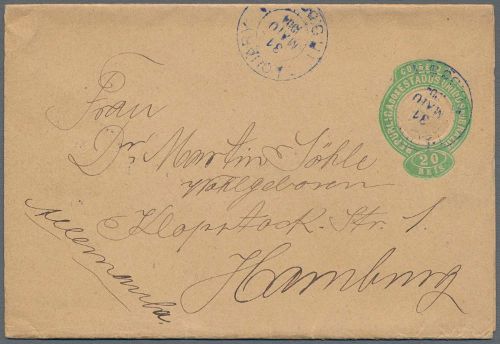 31
MAIO
CORREIO
REPUBLICA DOS ESTADOS UNIDOS DO BRAZIL
31
MAIO
20
REIS
Frau
Dr. Martin Söhle
Wohlgeboren
Klopstock-Str. 1.
Hamburg
Allemanha.